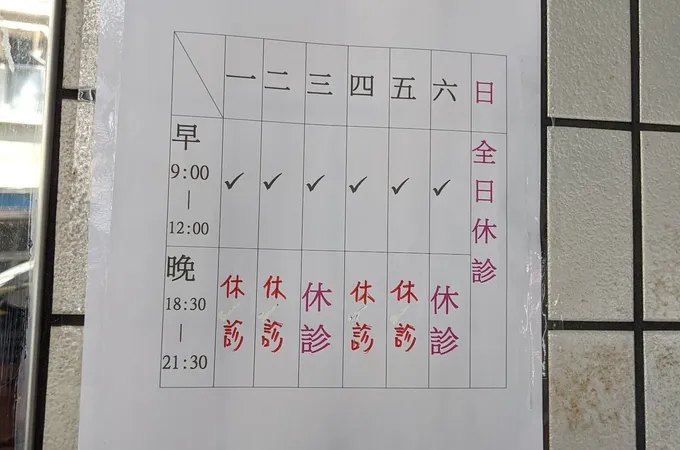 一 二 三 四 五 六 日
早 9:00 | 12:00 ✓ ✓ ✓ ✓ ✓ ✓ 全日休診
晚 18:30 | 21:30 休診 休診 休診 休診 休診 休診